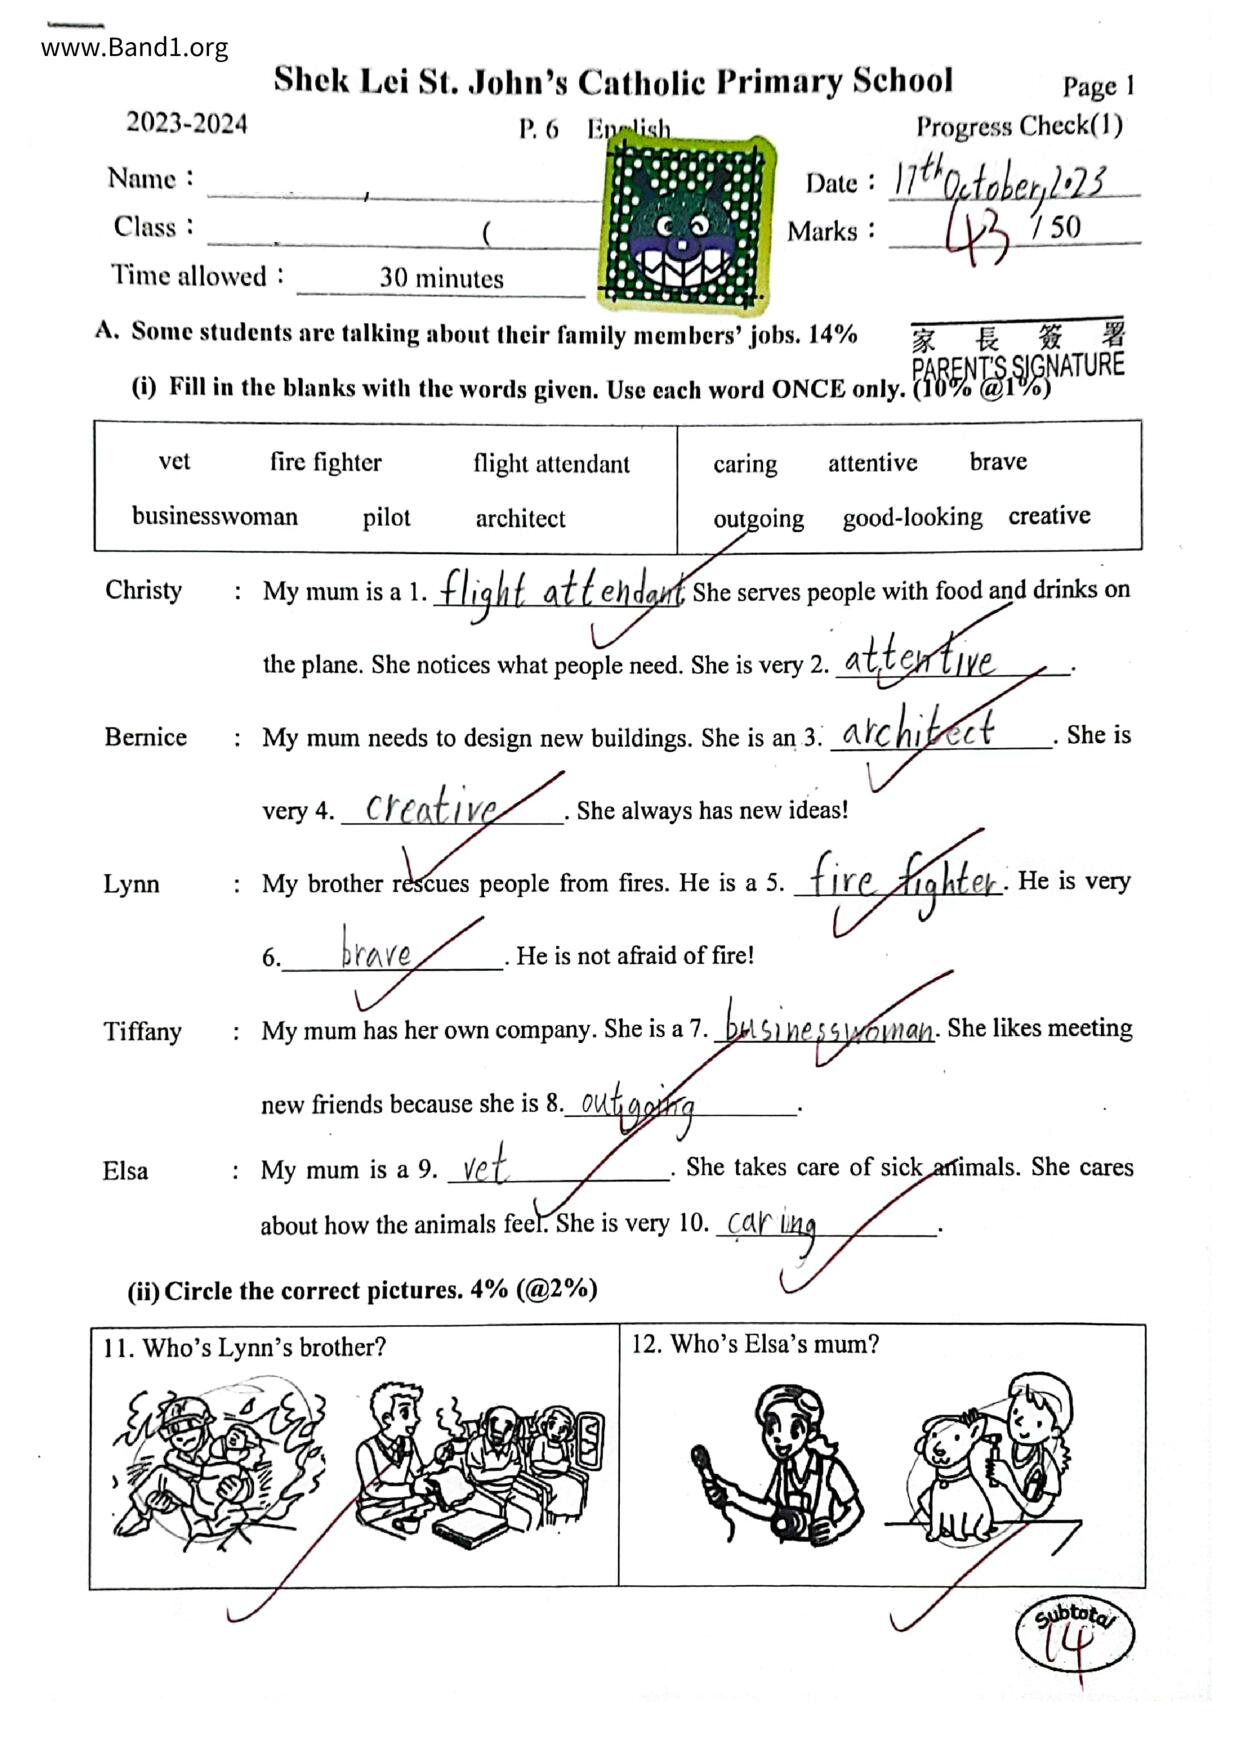 www.Band1.org
Shek Lei St. John's Catholic Primary School Page 1
2023-2024 P. 6 English Progress Check(1)
Name : Date : 17th October, 2023
Class : ( Marks : 43 / 50
Time allowed : 30 minutes
A. Some students are talking about their family members' jobs. 14%
家長簽署
PARENT'S SIGNATURE
(i) Fill in the blanks with the words given. Use each word ONCE only. (10% @1%)
vet fire fighter flight attendant caring attentive brave
businesswoman pilot architect outgoing good-looking creative
Christy : My mum is a 1. flight attendant. She serves people with food and drinks on
the plane. She notices what people need. She is very 2. attentive.
Bernice : My mum needs to design new buildings. She is an 3. architect. She is
very 4. creative. She always has new ideas!
Lynn : My brother rescues people from fires. He is a 5. fire fighter. He is very
6. brave. He is not afraid of fire!
Tiffany : My mum has her own company. She is a 7. businesswoman. She likes meeting
new friends because she is 8. outgoing.
Elsa : My mum is a 9. vet. She takes care of sick animals. She cares
about how the animals feel. She is very 10. caring.
(ii) Circle the correct pictures. 4% (@2%)
11. Who's Lynn's brother? 12. Who's Elsa's mum?
Subtotal
14